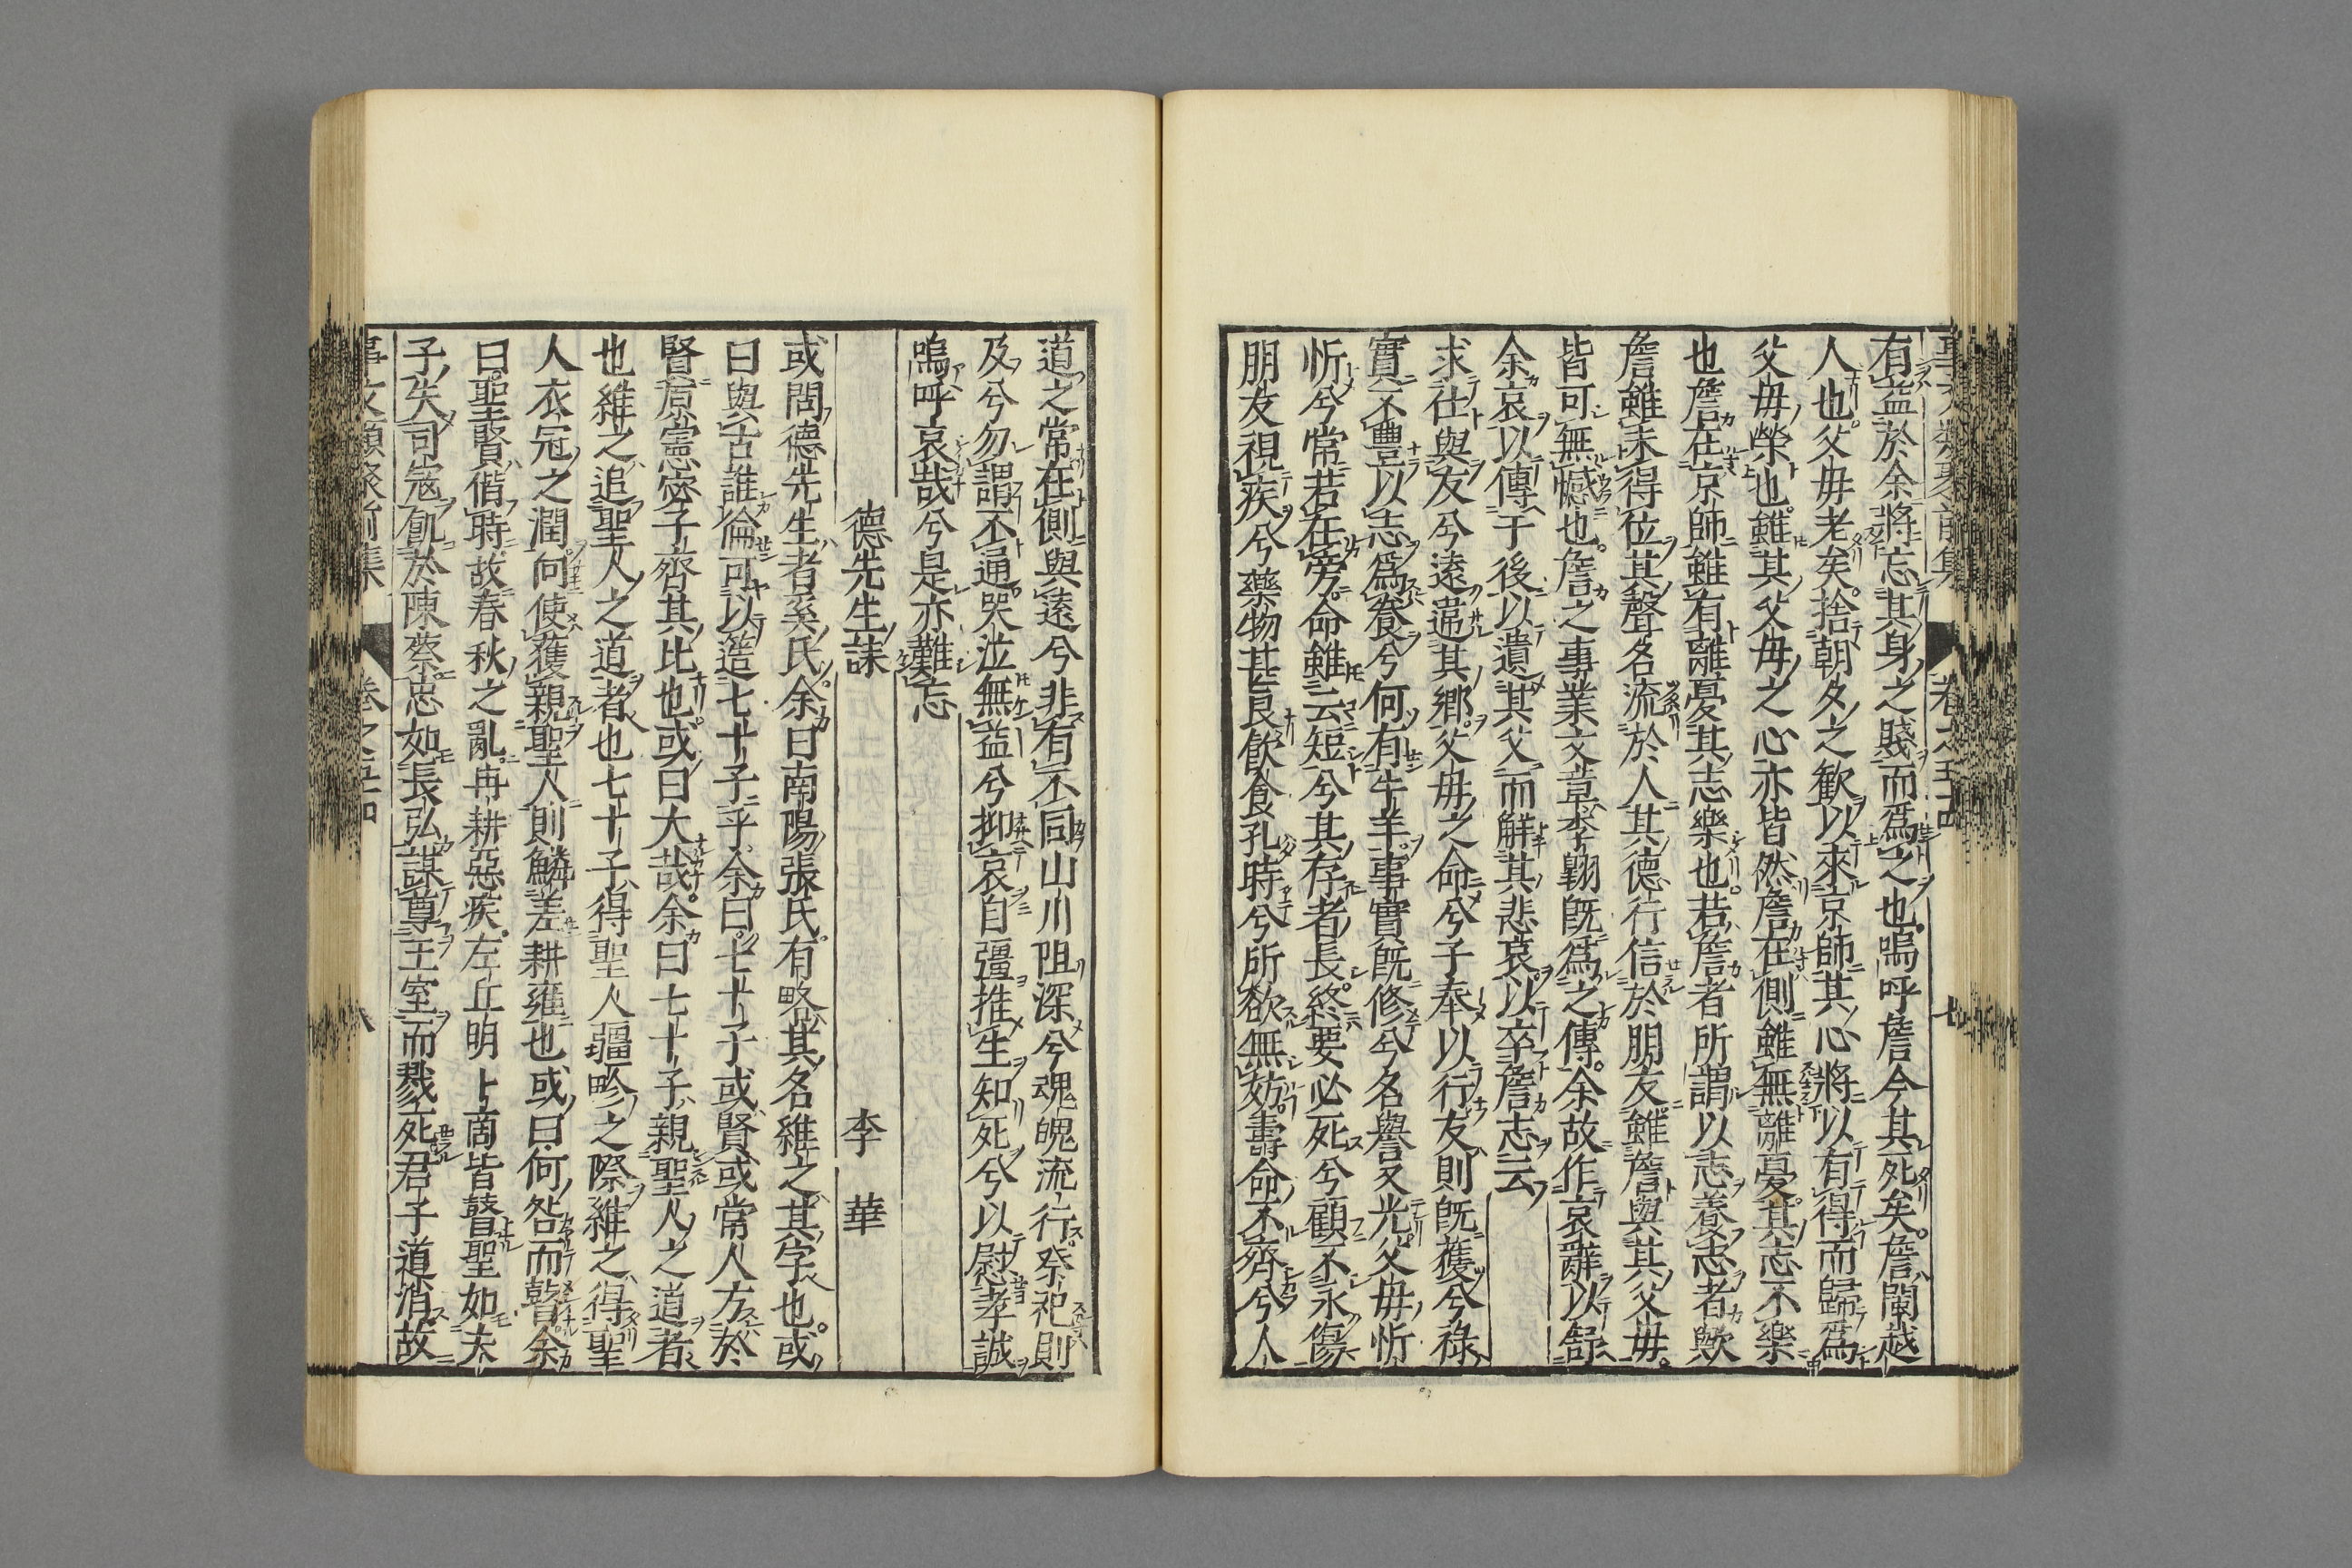 有益於余將忘其身之賤而爲之也嗚呼詹今其死矣詹閩越
人也父毋老矣捨朝夕之歡以來京師其心將以有得而歸爲
父毋榮也雖其父毋之心亦皆然詹在側雖無離憂其志不樂
也詹在京師雖有離憂其志樂也若詹者所謂以志養志者歟
詹雖未得位其聲名流於人其德行信於朋友雖詹與其父毋
皆可無憾也詹之事業文章李翺旣爲之傳余故作哀辭以舒
余哀以傳于後以遺其父而觧其悲哀以卒詹志云
求仕與友兮遠違其鄉父毋之命兮子奉以行友則旣獲兮祿
實不豐以志爲養兮何有牛羊事實旣修兮名譽又光父毋忻
忻兮常若在旁命雖云短兮其存者長終要必死兮顧不永傷
朋友視疾兮藥物甚良飲食孔時兮所欲無妨壽命不齊兮人
道之常在側與遠兮非有不同山川阻深兮魂魄流行祭祀則
及兮勿謂不通哭泣無益兮抑哀自彊推生知死兮以慰孝誠
嗚呼哀哉兮是亦難忘
德先生誄 李華
或問德先生者奚氏余曰南陽張氏有略其名維之其字也或
曰與古誰倫可以簉七十子乎余曰七十子或賢或常人方於
賢原憲宓子齊其比也或曰大哉余曰七十子親聖人之道者
也維之追聖人之道者也七十子得聖人疆畛之際維之得聖
人衣冠之潤向使獲親聖人則鱗差耕雍也或曰何咎而瞽余
曰聖賢偕時故春秋之亂冉耕惡疾左丘明卜商皆瞽聖如夫
子失司寇飢於陳蔡忠如長弘謀尊王室而戮死君子道消故